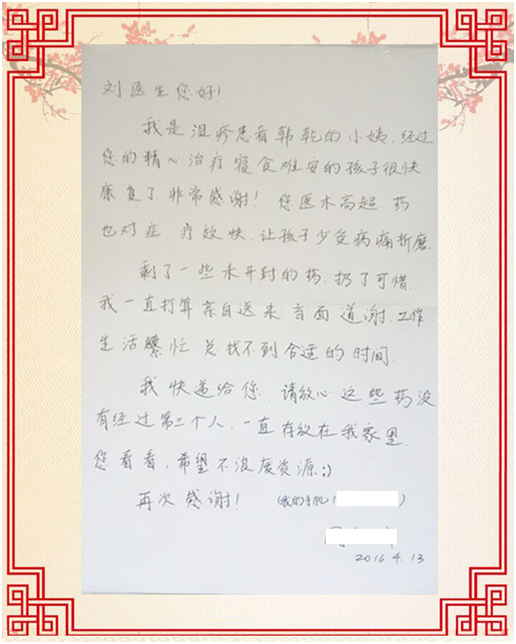 刘医生您好!
我是湿疹患者韩乾的小姨.经过
您的精心治疗寝食难安的孩子很快
康复了.非常感谢! 您医术高超.药
也对症.疗效快.让孩子少受病痛折磨.
剩了一些未开封的药.扔了可惜.
我一直打算亲自送来当面道谢.工作
生活繁忙.总找不到合适的时间.
我快递给您.请放心这些药没
有经过第二个人.一直存放在我家里.
您看看,希望不浪废资源:)
再次感谢! (我的手机: )
2016.4.13